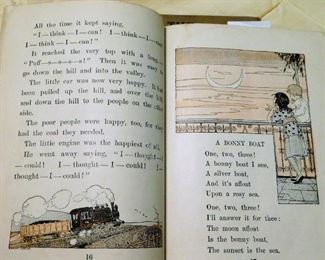 All the time it kept saying,
I—think—I—can! I—think—I—can!
I—think—I—can!
It reached the very top with a long—
"Puff—s—s—s—s!" Then it was easy to
go down the hill and into the valley.
The little car was now very happy. It had
been pulled up the hill, and over the hill
and down the hill to the people on the other
side.
The poor people were happy, too, for they
had the coal they needed.
The little engine was the happiest of all.
He went away saying, "I—thought—I—
could! I—thought—I—could! I—
thought—I—could!"
16
A BONNY BOAT
One, two, three!
A bonny boat I see,
A silver boat,
And it's afloat
Upon a rosy sea.
One, two, three!
I'll answer it for thee:
The moon afloat
Is the bonny boat,
The sunset is the sea.